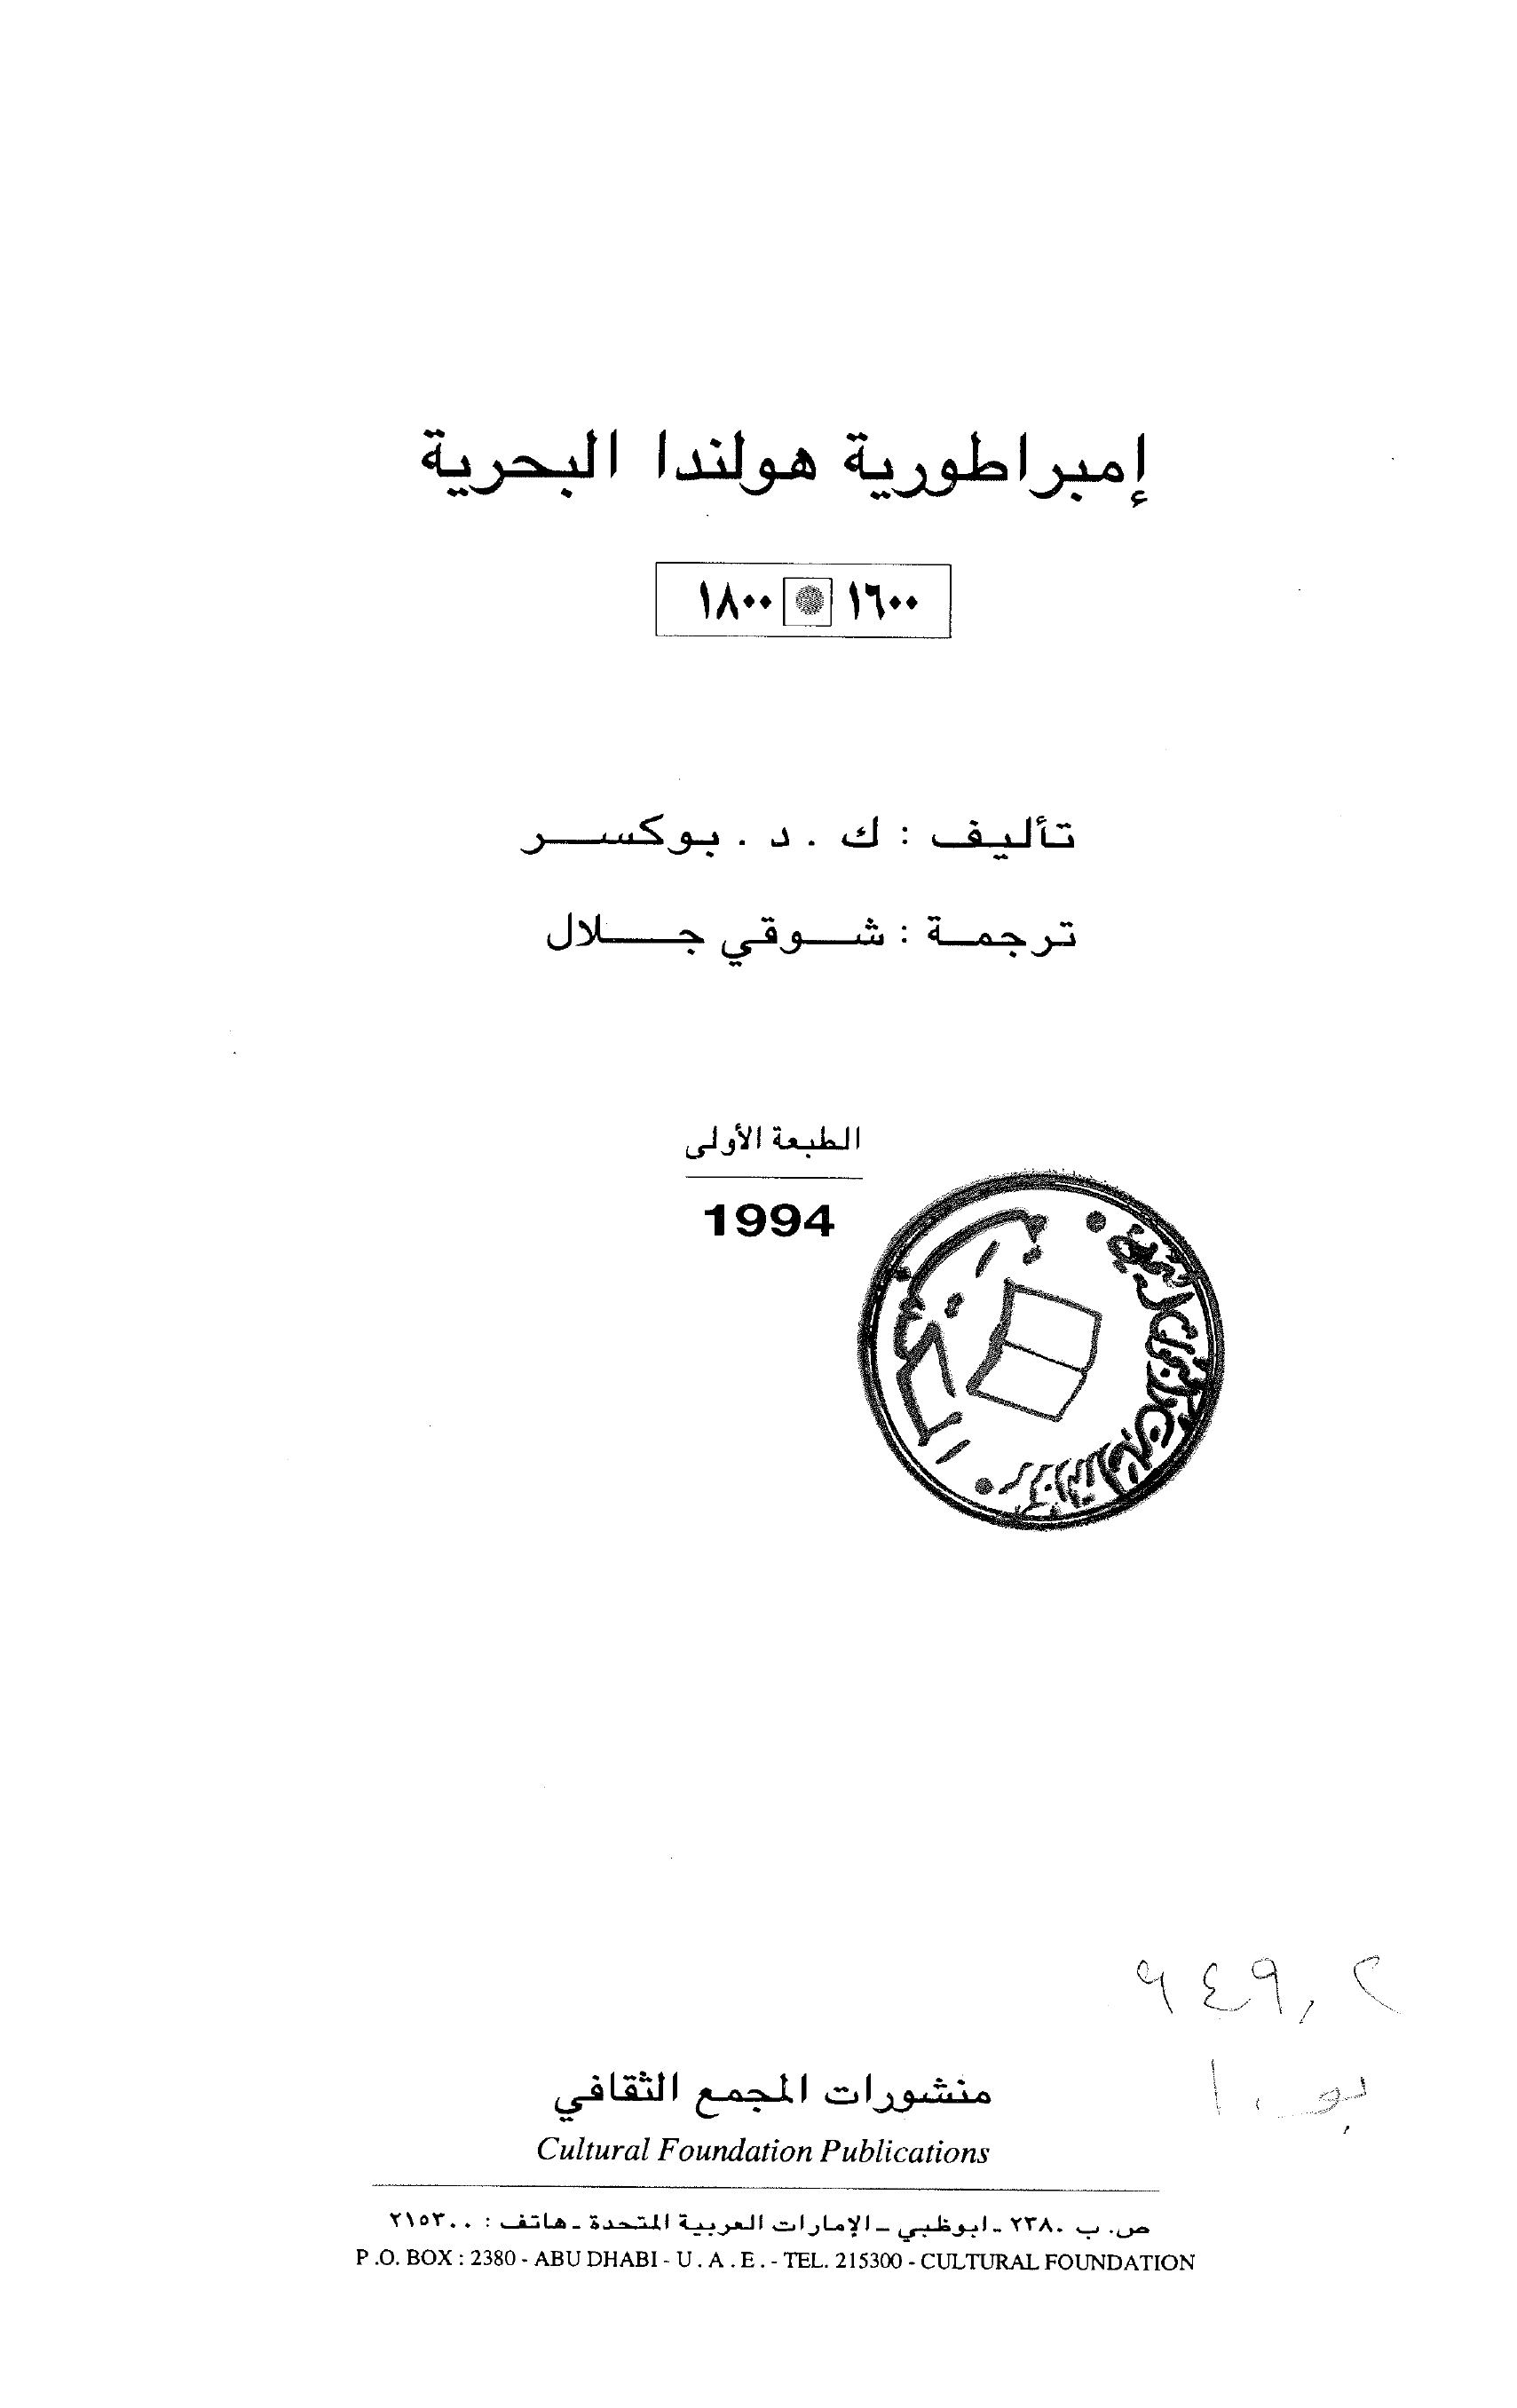 إمبراطورية هولندا البحرية
١٦٠٠ ١٨٠٠
تأليف : ك . د . بوكسر
ترجمة : شوقي جلال
الطبعة الأولى
1994
المكتبة
٩٤٩,٢
بو . ا
منشورات المجمع الثقافي
Cultural Foundation Publications
ص. ب ٢٣٨٠ - ابوظبي - الإمارات العربية المتحدة - هاتف : ٢١٥٣٠٠
P .O. BOX : 2380 - ABU DHABI - U . A . E . - TEL. 215300 - CULTURAL FOUNDATION